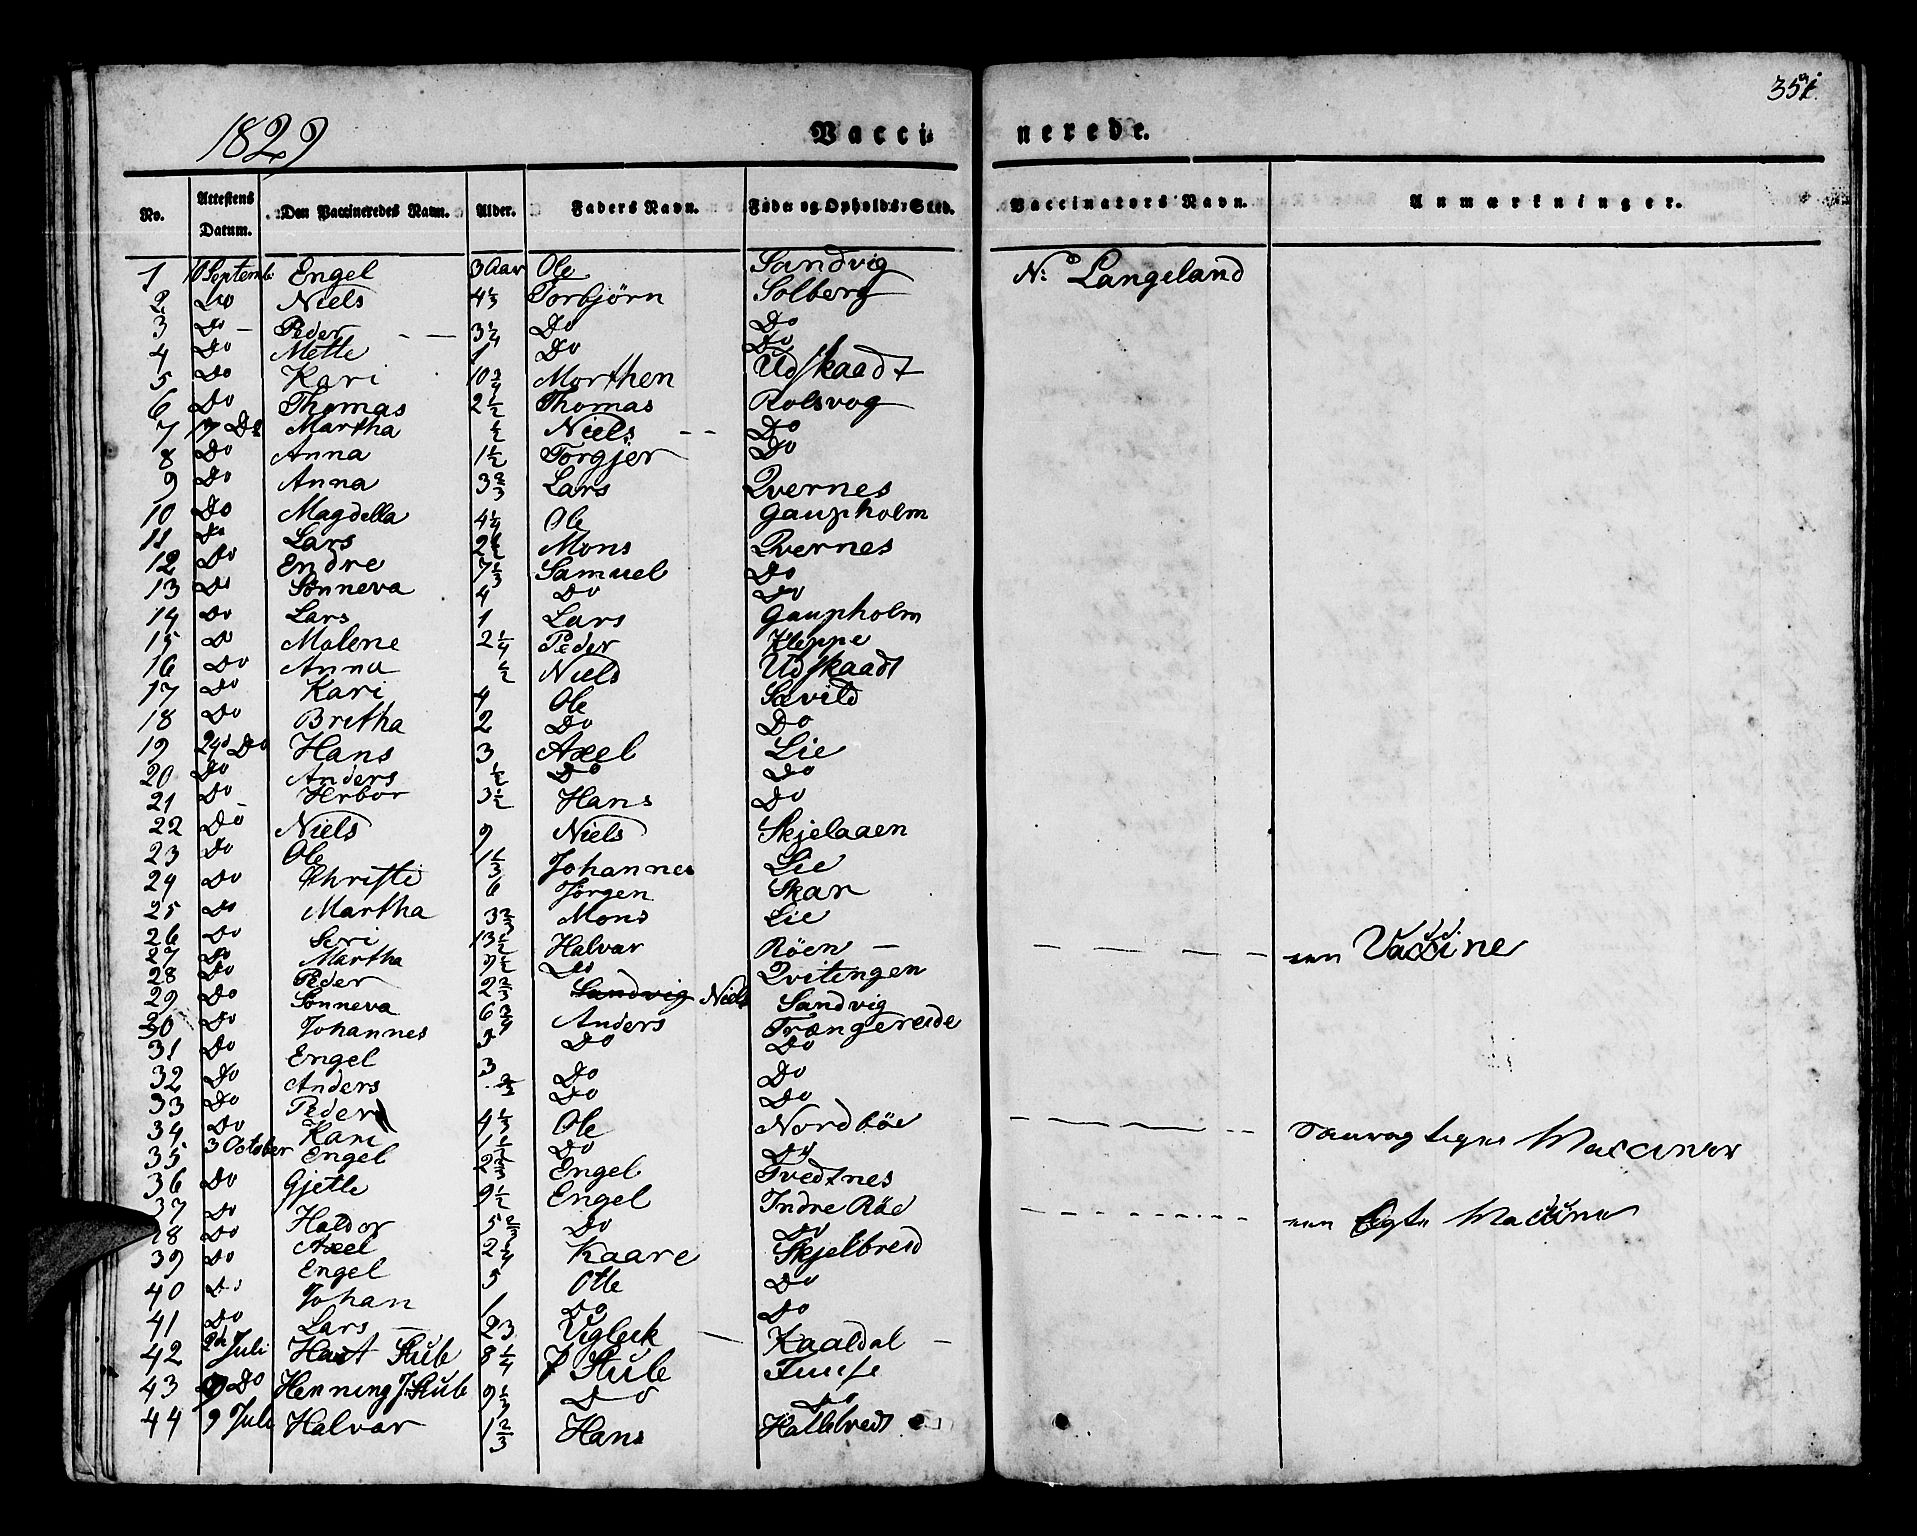 351
1829
Vacci- nerede.
No. Attestens Datum. Den Vaccineredes Navn. Alder. Faders Navn. Føde og Opholds-Sted. Vaccinators Navn. Anmærkninger.
1 10 Septemb: Engel 3 Aar Ole Sandvig N: Langeland
2 Do Niels 4 1/3 Torbjörn Solberg
3 Do — Peder — — 3 1/4 Do Do
4 Do Mette 1 Do Do
5 Do Kari 10 3/4 Morthen Udskaadt
6 Do Thomas 2 1/2 Thomas Rolsvog
7 17 Do Martha 1/2 Niels — — Do
8 Do Anna 1 1/2 Torgjer Do
9 Do Anna 3 2/3 Lars Qvernes
10 Do Magdella 4 1/4 Ole Gaupholm
11 Do Lars 2 1/2 Mons Qvernes
12 Do Endre 7 1/3 Samuel Do
13 Do Sønneva 4 Do Do
14 Do Lars 1 Lars Gaupholm
15 Do Malene 2 1/4 Peder Kleppe
16 Do Anna 1/2 Niels Udskaadt
17 Do Kari 4 Ole Sævild
18 Do Britha 2 Do Do
19 24d Do Hans 3 Axel Lie
20 Do Anders 1/2 Do Do
21 Do Herbor 3 1/2 Hans Do
22 Do Niels 9 Niels Skjelaaen
23 Do Ole 1 1/3 Johannes Lie
24 Do Christi 6 Jørgen Skar
25 Do Martha 3 2/3 Mons Lie
26 Do Seri 13 1/2 Halvar Röen — — — — — Vaccine
27 Do Martha 9 1/2 Do Qvitengen
28 Do Peder 2 2/3 Sandvig Niels Sandvig
29 Do Sønneva 6 3/4 Anders Trængereide
30 Do Johannes 5 Do Do
31 Do Engel 3 Do Do
32 Do Anders 2/3 Do Do
33 Do Peder 4 1/3 Ole Nordböe
34 Do Kari 1 1/2 Do Do
35 3 October Engel 2 2/3 Engel Tvedtnes
36 Do Gjetle 9 1/2 Engel Indre Räe
37 Do Haldor 5 2/3 Do Do
38 Do Axel 2 1/4 Kaare Skjelbreid
39 Do Engel 5 Otte Do
40 Do Johan 1 Do Do
41 Do Lars — 23 Vigleik — Kaaldal —
42 2d Juli Hast Stub 8 1/4 J Stub Fuuse
43 Do Henning J. Stub 9 1/3 Do Do
44 9 Juli Halvar 1 2/3 Hans Hallebredt